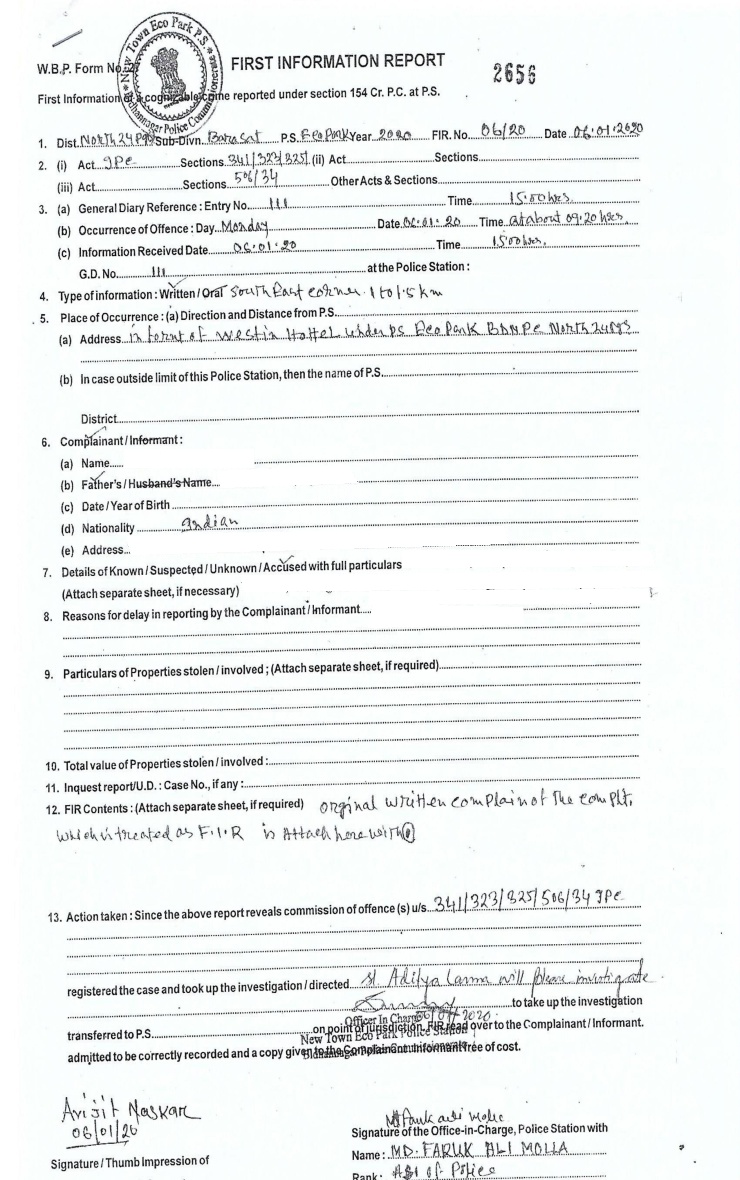 New Town Eco Park P.S.
Bidhannagar Police Commissionerate
W.B.P. Form No. 27
FIRST INFORMATION REPORT
2656
First Information of a cognizable crime reported under section 154 Cr. P.C. at P.S.
1. Dist. North 24 Pgs Sub-Divn. Barasat P.S. Eco Park Year 2020 FIR. No. 06/20 Date 06.01.2020
2. (i) Act IPC Sections 341/323/325/ (ii) Act Sections
(iii) Act Sections 506/34 Other Acts & Sections
3. (a) General Diary Reference : Entry No. 111 Time 15:00 hrs
(b) Occurrence of Offence : Day Monday Date 06.01.20 Time at about 09:20 hrs.
(c) Information Received Date 06.01.20 Time 15:00 hrs.
G.D. No. 111 at the Police Station :
4. Type of information : Written / Oral South East corner. 1 to 1.5 km
5. Place of Occurrence : (a) Direction and Distance from P.S.
(a) Address in fornt of Westin Hottel under PS Eco Park North 24 Pgs
(b) In case outside limit of this Police Station, then the name of P.S.
District
6. Complainant / Informant :
(a) Name
(b) Father's / Husband's Name
(c) Date / Year of Birth
(d) Nationality Indian
(e) Address
7. Details of Known / Suspected / Unknown / Accused with full particulars
(Attach separate sheet, if necessary)
8. Reasons for delay in reporting by the Complainant / Informant
9. Particulars of Properties stolen / involved ; (Attach separate sheet, if required)
10. Total value of Properties stolen / involved :
11. Inquest report/U.D. : Case No., if any :
12. FIR Contents : (Attach separate sheet, if required) orginal written complain of the complt,
which is treated as F.I.R is Attach here with
13. Action taken : Since the above report reveals commission of offence (s) u/s. 341/323/325/506/34 IPC
registered the case and took up the investigation / directed SI Aditya Lama will please investigate
to take up the investigation
Officer In Charge 06/01/2020
transferred to P.S. on point of jurisdiction. FIR read over to the Complainant / Informant.
New Town Eco Park Police Station
admitted to be correctly recorded and a copy given to the Complainant Informant free of cost.
Bidhannagar Police Commissionerate
Avijit Naskar
06/01/20
Signature / Thumb Impression of
Md Faruk Ali Molla
Signature of the Office-in-Charge, Police Station with
Name : MD. FARUK ALI MOLLA
Rank : ASI of Police